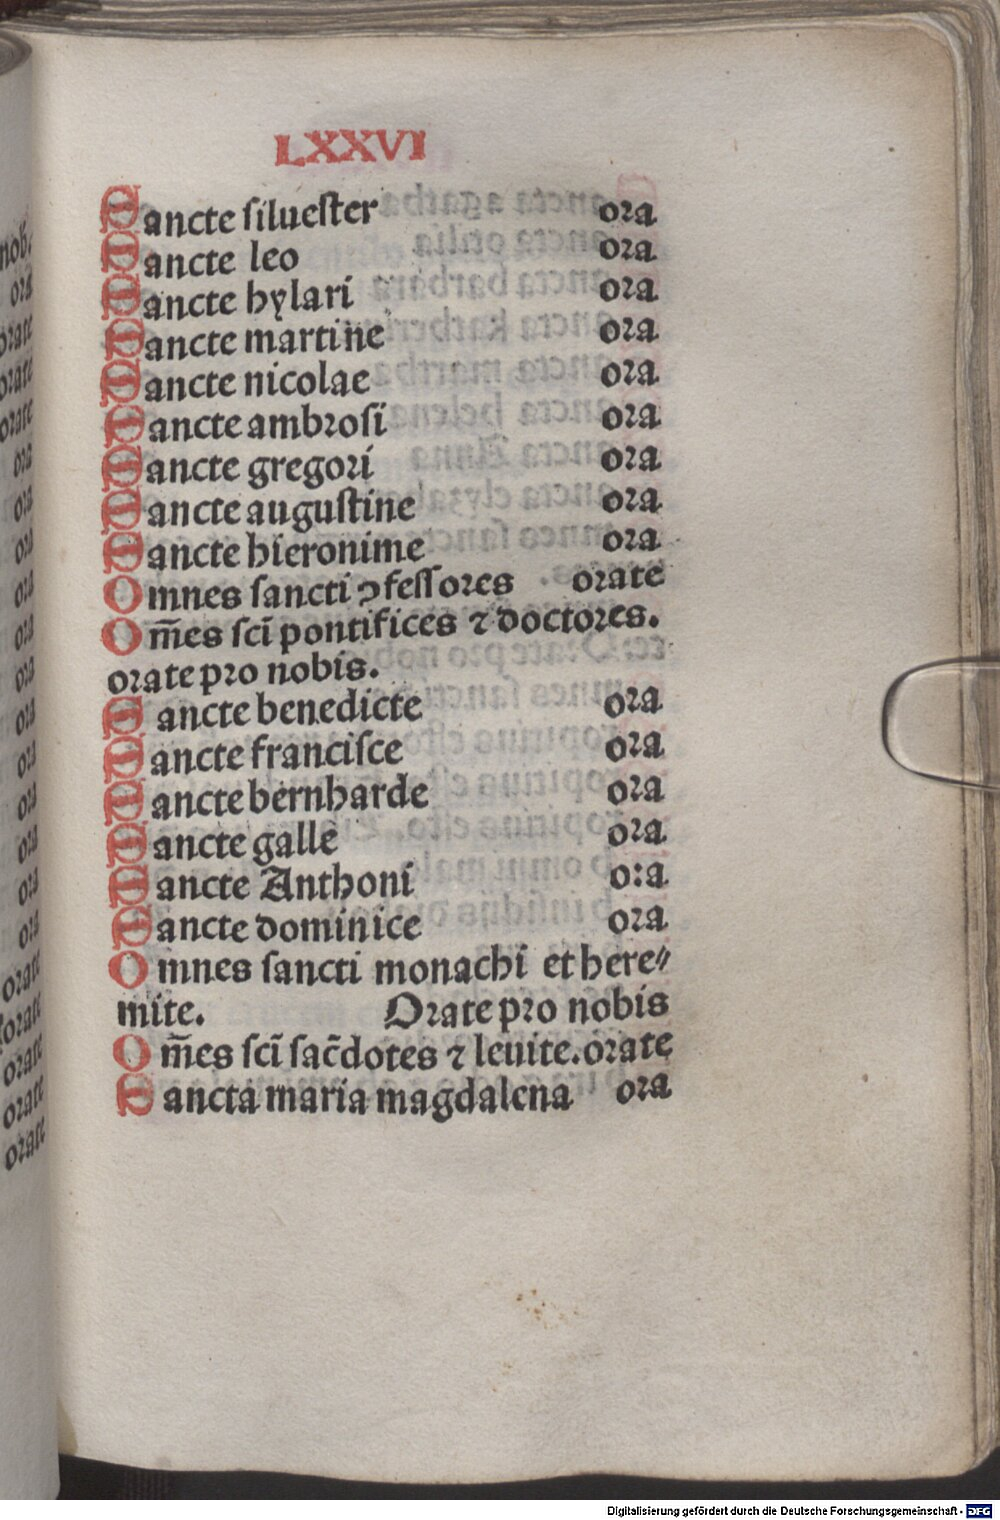 LXXVI
Sancte ſilueſter ora
Sancte leo ora
Sancte hylari ora
Sancte martine ora
Sancte nicolae ora
Sancte ambꝛoſi ora
Sancte gregoꝛi ora
Sancte auguſtine ora
Sancte hieronime ora
Omnes ſancti ꝯfeſſoꝛes orate
Om̄es ſcī pontifices ⁊ doctoꝛes.
oꝛate pꝛo nobis.
Sancte benedicte oꝛa
Sancte franciſce oꝛa
Sancte bernharde oꝛa
Sancte galle oꝛa
Sancte Anthoni oꝛa
Sancte dominice oꝛa
Omnes ſancti monachi et here⸗
mite. Oꝛate pꝛo nobis
Om̄es ſcī ſac̄dotes ⁊ leuite.oꝛate
Sancta maria magdalena oꝛa
nob.
ora
orate
orate
orate
ora
ora
ora
ora
ora
ora
ora
ora
ora
ora
ora
ora
orate
orate
orate
orate
orate
Digitalisierung gefördert durch die Deutsche Forschungsgemeinschaft - DFG